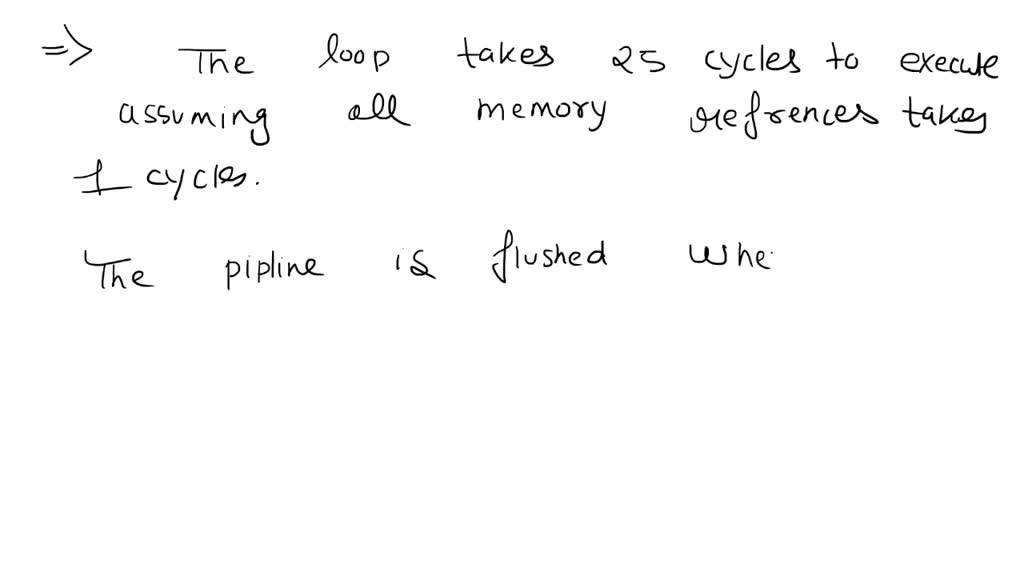 => The loop takes 25 cycles to execute
assuming all memory refrences takes
1 cycles.
The pipline is flushed whe